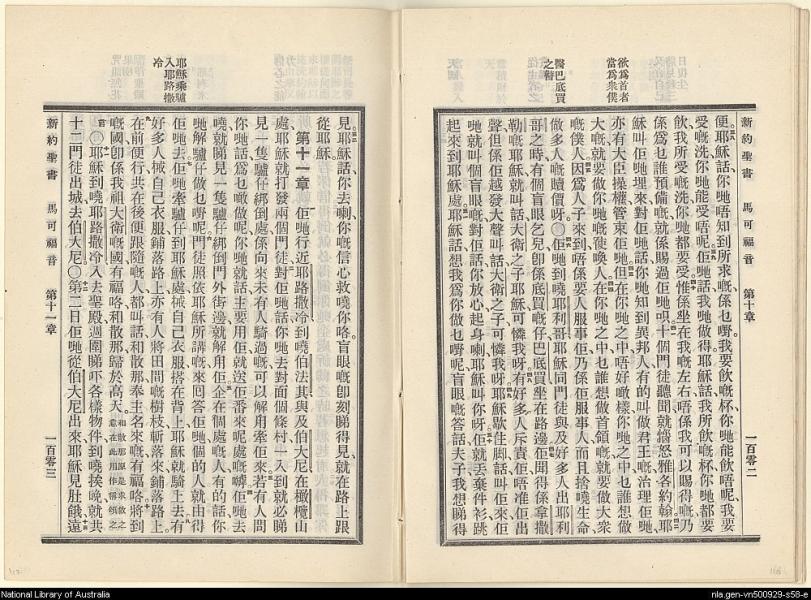 欲爲首者
當爲衆僕
醫巴底買
之瞽
新約聖書 馬可福音 第十章 一百零二
便耶穌話你哋唔知到所求嘅係乜嘢我要飲嘅杯你哋能飲唔呢我要
受嘅洗你哋能受唔呢佢哋話我哋做得耶穌話我所飲嘅杯你哋都要
飲我所受嘅洗你哋都要受惟係坐在我嘅左右唔係我可以賜得嘅乃
係爲乜誰預備嘅就係賜過佢哋呮十個門徒聽聞就惱怒雅各約翰耶
穌叫佢哋埋來對佢哋話你哋知到異邦人有的叫做君王嘅治理佢哋
亦有大臣操權管束佢哋但在你哋之中唔好噉樣你哋之中乜誰想做
大嘅就要做你哋嘅使喚人在你哋之中乜誰想做首領嘅就要做大衆
嘅僕人因爲人子來到唔係要人服事佢乃係佢服事人而且捨曉生命
做多人嘅贖價呀○佢哋到曉耶利哥耶穌同門徒與及好多人出耶利
哥之時有個盲眼乞兒卽係底買嘅仔巴底買坐在路邊佢聞得係拿撒
勒嘅耶穌就叫話大衛之子耶穌可憐我呀有好多人斥責佢唔准佢出
聲但係佢越發大聲叫話大衛之子可憐我呀耶穌歇住脚話叫佢來佢
哋就叫個盲眼嘅對佢話你放心起身喇耶穌叫你呀佢就丟棄件衫跳
起來到耶穌處耶穌話想我爲你做乜嘢呢盲眼嘅答話夫子我想睇得
耶穌乘驢
入耶路撒
冷
見耶穌話你去喇你嘅信心救曉你咯盲眼嘅卽刻睇得見就在路上跟
從耶穌
第十一章 佢哋行近耶路撒冷到曉伯法其與及伯大尼在橄欖山
處耶穌就打發兩個門徒對佢哋話你哋去對面個條村一入到就必睇
見一隻驢仔綁倒處係向來未有人騎過嘅可以解用牽佢來若有人問
你哋話爲乜噉做呢你哋就話主要用佢就送佢番來呢處嘅嗱佢哋去
曉就睇見一隻驢仔綁倒門外街邊就解用佢企在個處嘅人有的話你
哋解驢仔做乜嘢呢門徒照依耶穌所講嘅來回答佢哋個的人就由得
佢哋去佢哋牽驢仔到耶穌處搣自己衣服搭在背上耶穌就騎上去有
好多人搣自己衣服鋪落路上亦有人將田間嘅樹枝斬落來鋪落路上
在前便行共在後便跟隨嘅人都叫話和散那奉主名來嘅有福咯將到
嘅國卽係我祖大衛嘅國有福咯和散那歸於高天 和散那原是求救之意在此用作稱頌之
言○耶穌到曉耶路撒冷入去聖殿週圍睇吓各樣物件到曉挨晚就共
十二門徒出城去伯大尼○第二日佢哋從伯大尼出來耶穌見肚餓遠
新約聖書 馬可福音 第十一章 一百零三
National Library of Australia
nla.gen-vn500929-s58-e